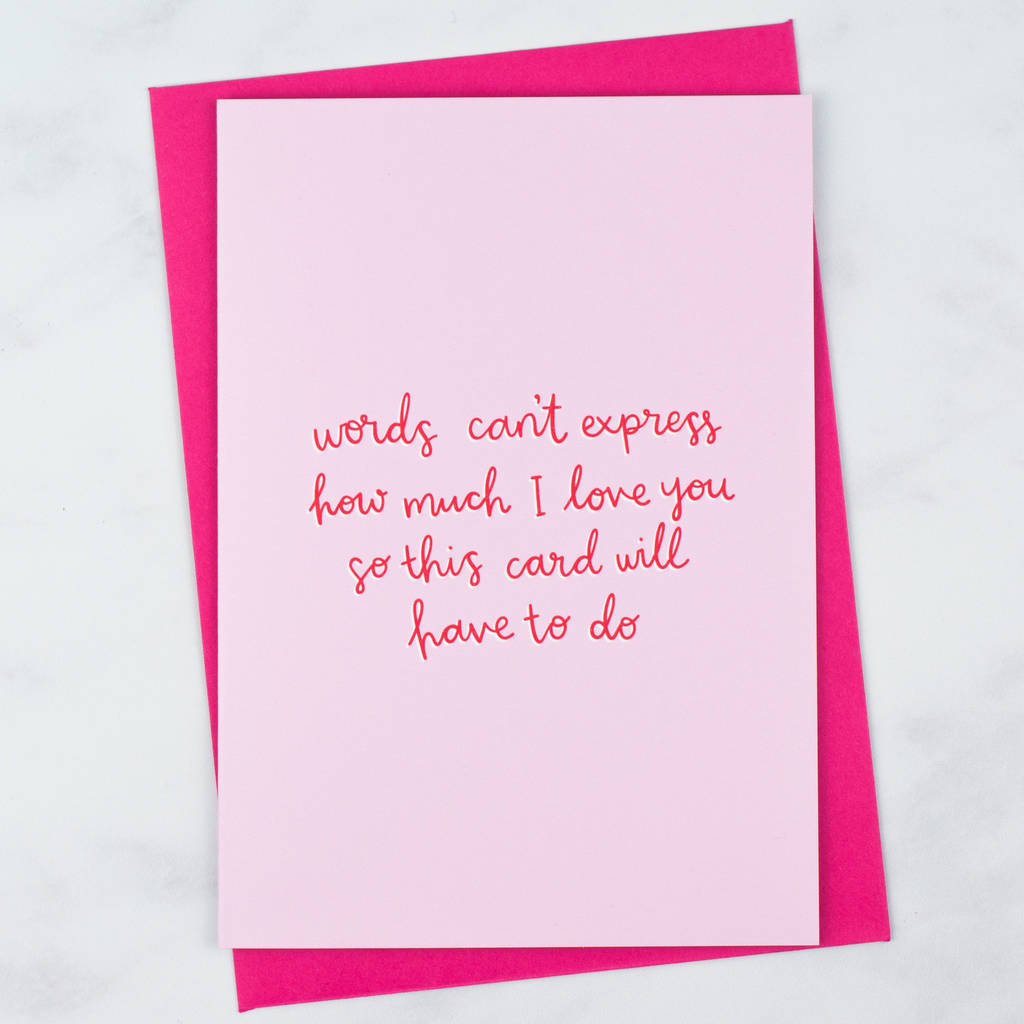 words can't express
how much I love you
so this card will
have to do